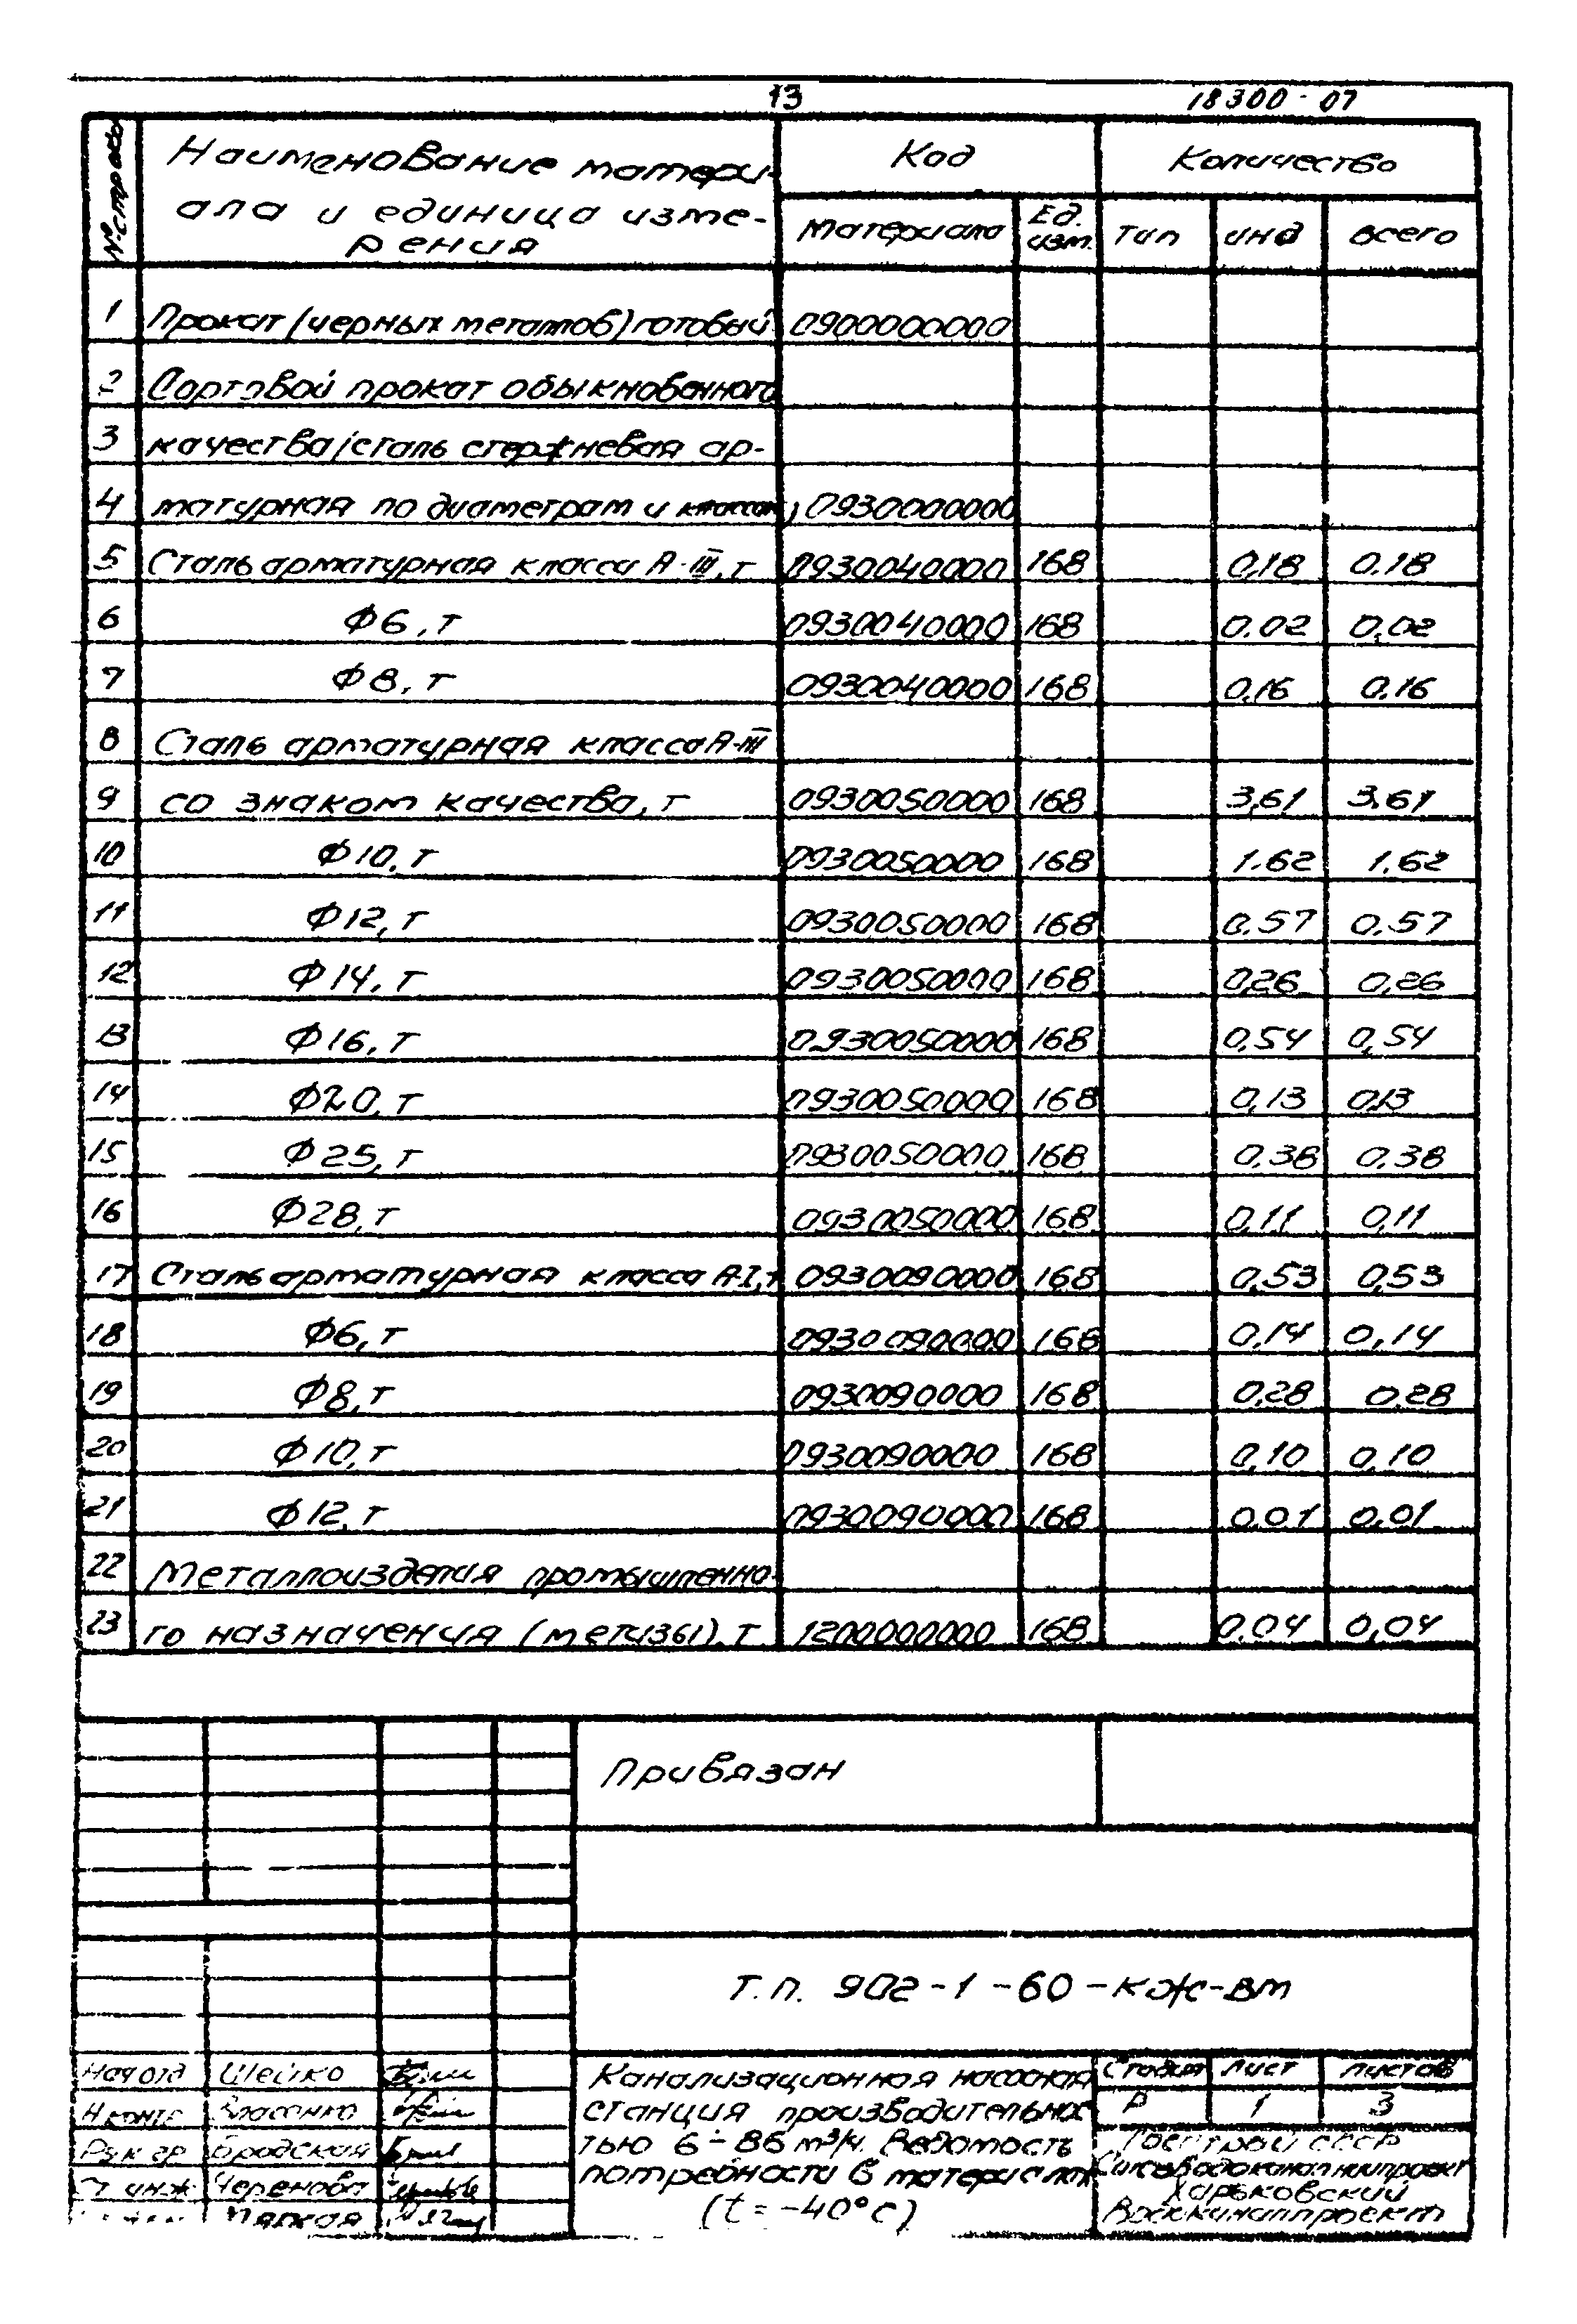 13 18300-07
№ строки Наименование матери- Код Количество
ала и единица изме-
рения Материала Ед. изм. тип инд всего
1 Прокат (черных металлов) готовый 0900000000
2 Сортовой прокат обыкновенного
3 качества (сталь стержневая ар-
4 матурная по диаметрам и классам) 0930000000
5 Сталь арматурная класса А-III, т 0930040000 168 0,18 0.18
6 Ф6, т 0930040000 168 0.02 0,02
7 Ф8, т 0930040000 168 0,16 0,16
8 Сталь арматурная класса А-III
9 со знаком качества, т 0930050000 168 3,61 3,61
10 Ф10, т 0930050000 168 1.62 1.62
11 Ф12, т 0930050000 168 0.57 0,57
12 Ф14, т 0930050000 168 0,26 0,26
13 Ф16, т 0930050000 168 0,54 0,54
14 Ф20, т 0930050000 168 0,13 0,13
15 Ф25, т 0930050000 168 0,38 0.38
16 Ф28, т 0930050000 168 0,11 0,11
17 Сталь арматурная класса А-I, т 0930090000 168 0,53 0,53
18 Ф6, т 0930090000 168 0,14 0,14
19 Ф8, т 0930090000 168 0,28 0.28
20 Ф10, т 0930090000 168 0,10 0,10
21 Ф12, т 0930090000 168 0,01 0,01
22 Металлоизделия промышленно-
23 го назначения (метизы), т 1200000000 168 0.04 0,04
Привязан
Т.п. 902-1-60-КЖ-ВМ
Нач отд Шейко
Н контр Власенко
Рук гр Бродская
Ст инж Черенова
Мягкая
Канализационная насосная
станция производительнос
тью 6-86 м³/ч. Ведомость
потребности в материалах
(t = -40°С)
Стадия Лист Листов
Р 1 3
Госстрой СССР
Союзводоканалниипроект
Харьковский
Водоканалпроект